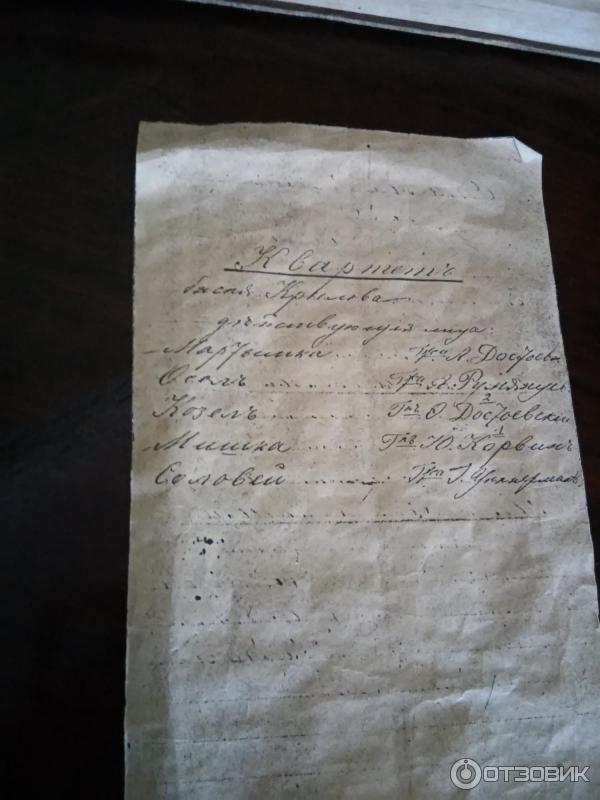 Квартетъ
басня Крылова
дѣйствующія лица:
Мартышка . . . Г-жа А. Достоев
Оселъ . . . Г-жа А. Румянц
Козелъ . . . Г-нъ Ѳ. Достоевскій
2
Мишка . . . Г-нъ Ю. Корвинъ
1
Соловей . . . Г-жа
ОТЗОВИК